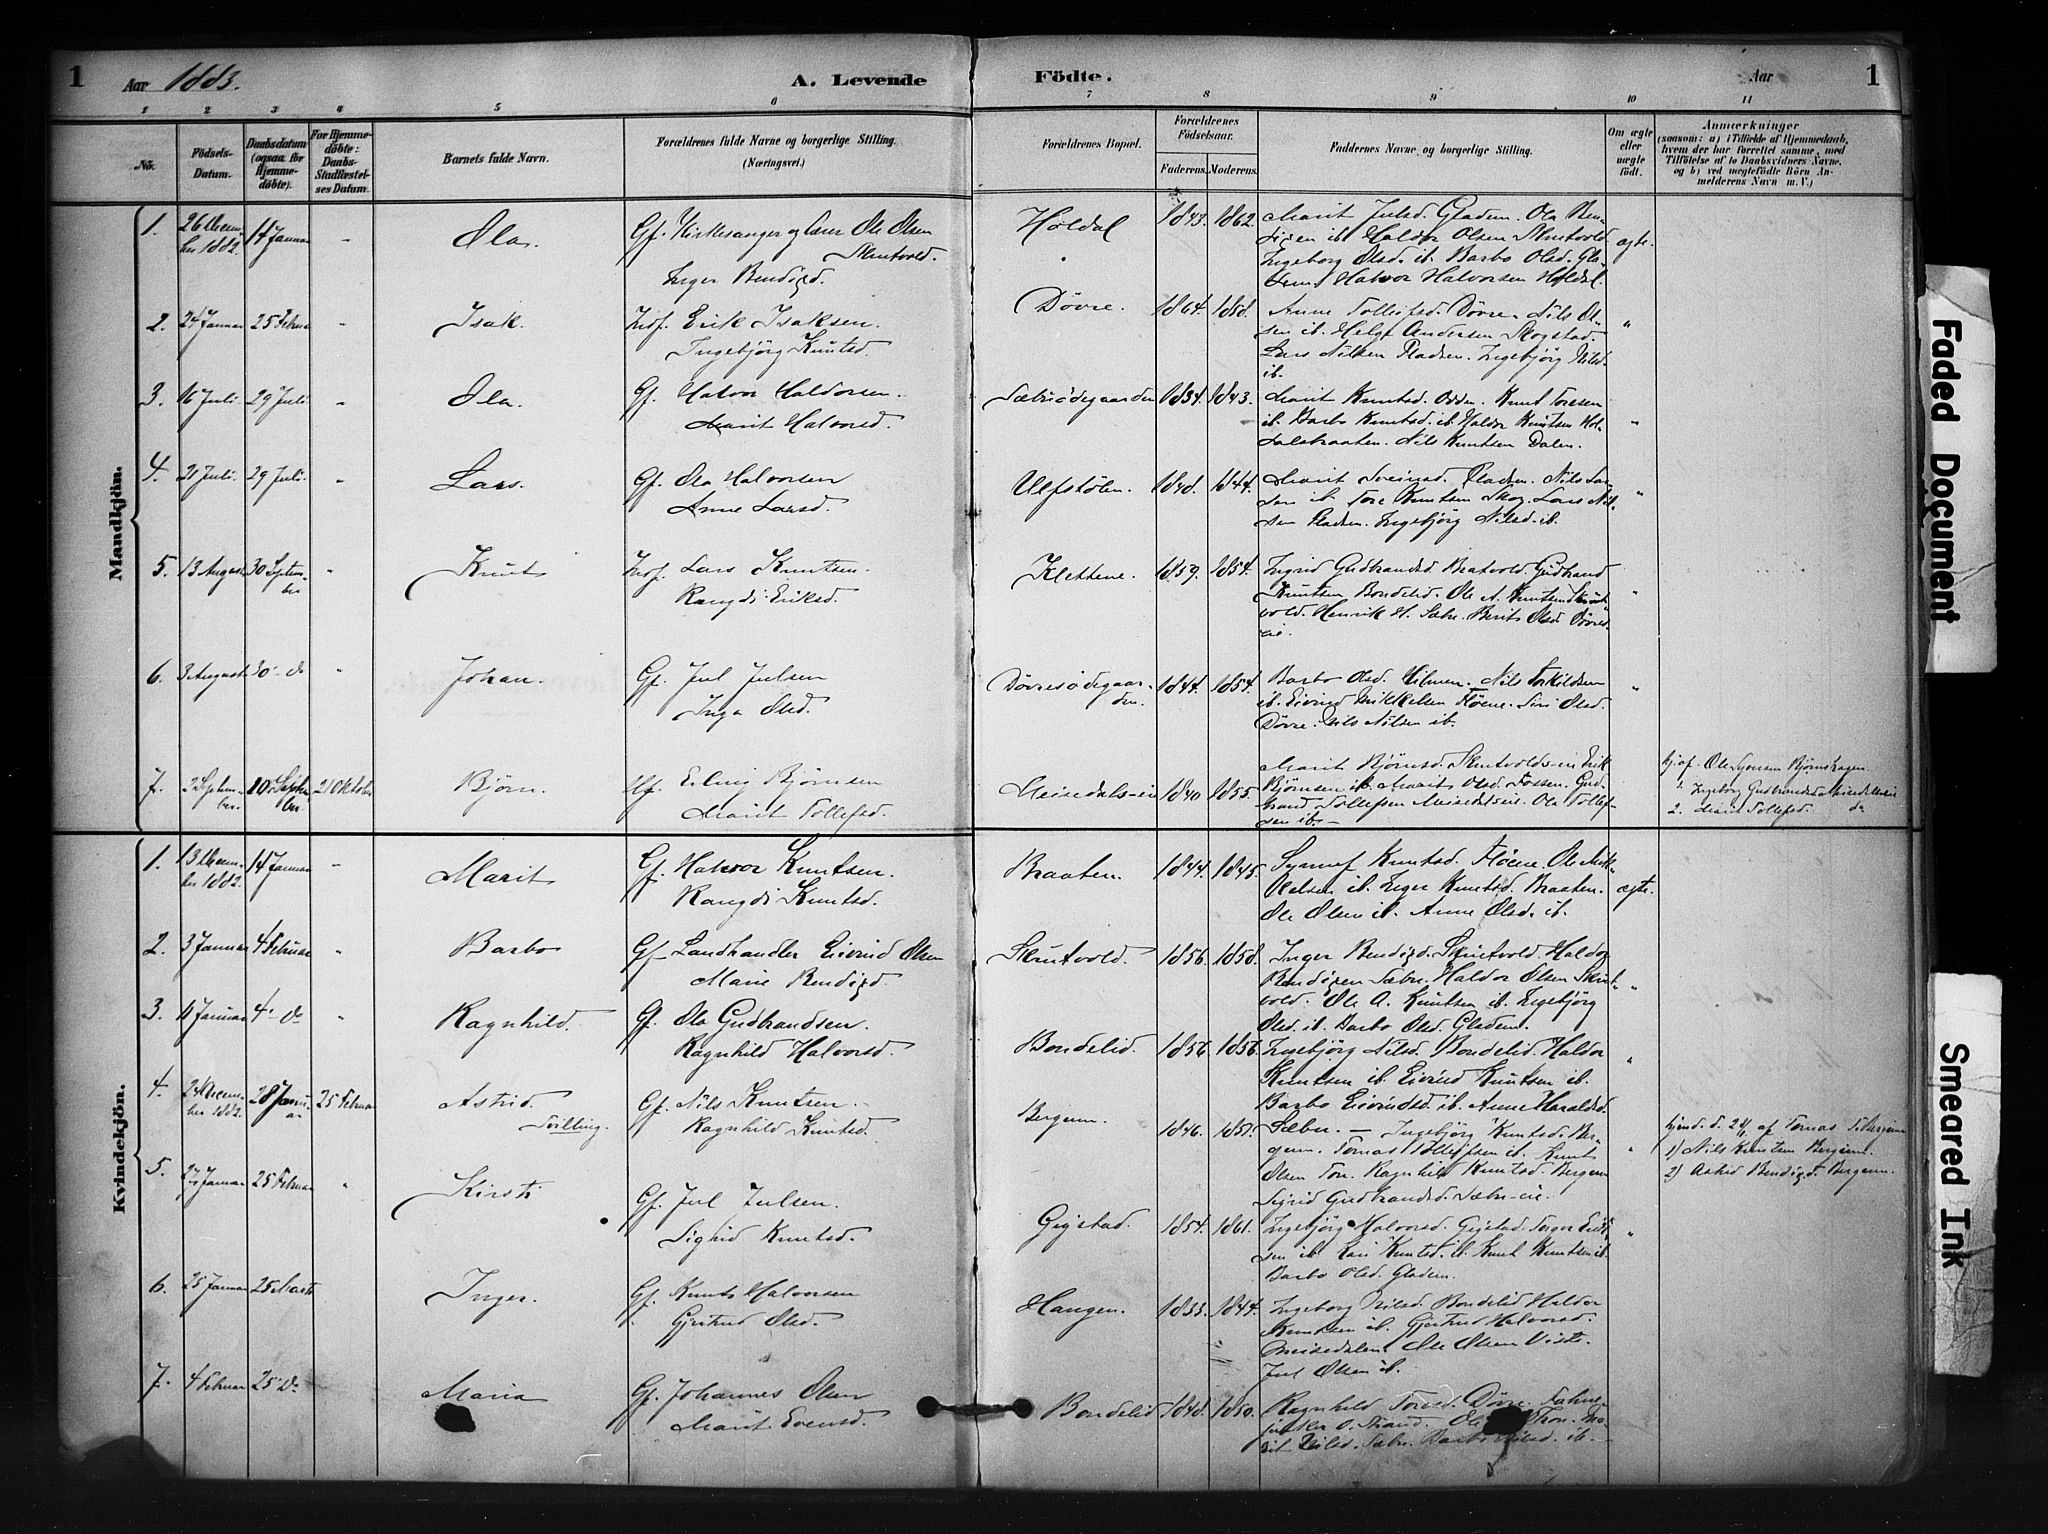 1 Aar 1883. A. Levende Födte. Aar 1
1 2 3 4 5 6 7 8 9 10 11
No.
Födsels-
Datum.
Daabsdatum
(ogsaa for
Hjemme-
döbte).
For Hjemme-
döbte:
Daabs-
Stadfæstel-
ses Datum.
Barnets fulde Navn.
Forældrenes fulde Navne og borgerlige Stilling.
(Næringsvei.)
Forældrenes Bopæl.
Forældrenes
Födselsaar.
Faderens. Moderens.
Faddernes Navne og borgerlige Stilling.
Om ægte
eller
uægte
födt.
Anmærkninger
(saasom: a) i Tilfælde af Hjemmedaab,
hvem der har forrettet samme, med
Tilföielse af to Daabsvidners Navne.
og b) ved uægtefödte Börn An-
melderens Navn m. V.)
Mandkjön.
1. 26 Decem-
ber 1882. 14 Januar " Ola. Gf. Kirkesanger og Lærer Ole Olsen
Skutvold.
Inger Bendigsd.
Høldal 1843. 1862.
Marit Julsd. Gladem. Ola Ben-
digsen ib. Haldor Olsen Skutvold. ægte.
Ingeborg Olsd. ib. Barbo Olsd. Gla-
dem. Halvor Halvorsen Høldal.
2. 24 Januar 25 Februar " Isak. Erik Isaksen.
Ingebjörg Knutsd.
Dövre. 1864. 1858.
Anne Tollefsd. Dövre. Nils Ol-
sen ib. Helge Andersen Skogstad. "
Lars Nilsen Pladsen. Ingebjörg Nilsd.
ib.
3. 16 Juli. 29 Juli " Ola. Gf. Halvor Haldorsen.
Marit Halvorsd.
Sæbuödegaarden 1834. 1843.
Marit Knutsd. Odden. Knut Toresen
ib. Barbo Knutsd. ib. Haldor Knutsen Høl-
dalsbraaten. Nils Knutsen Dalen. "
4. 21 Juli. 29 Juli. " Lars. Gf. Ola Halvorsen
Anne Larsd.
Ulfstölen. 1848. 1844.
Marit Pladsen. Nils Lar-
sen ib. Tore Knutsen Skog. Lars Nil-
sen Pladsen. Ingebjörg Nilsd. ib. "
5. 13 August 30 Septem-
ber " Knut Lars Knutsen.
Rangdi Eriksd.
Klettene. 1859. 1854.
Ingrid Gudbrandsd. Bratvold. Gudbrand
Knutsen Bondelid. Ole A. Knutsen Skut-
vold. Henrik H. Sæbu. Berit Olsd. Dövre-
eie. "
6. 3 August 30 - do " Johan. Gf. Jul Julsen
Inga Olsd.
Dövresödegaar-
den. 1844. 1854.
Barbo Olsd. Nils Torkildsen
ib. Eivind Mikkelsen Flöene. Siri Olsd.
Dövre. Nils Nilsen ib. "
7. 2 Septem-
ber. 10 Septem-
ber 21 Oktober Björn. Erling Björnsen
Marit Tollefsd.
Meisedals-eie 1840 1855.
Marit Björnsd. Skutvolds-eie Erik
Björnsen ib. Marit Olsd. Fossen. Gud-
brand Tollefsen Meisedalseie. Ola Tollef-
sen ib. —
hj. af. Ole Syversen Björnshagen.
1. Ingeborg Gudbrandsd. Meisedalseie
2. Marit Tollefsd. do
Kvindekjön.
1. 13 Decem-
ber 1882. 14 Januar " Marit Gf. Halvor Knutsen.
Rangdi Knutsd.
Braaten. 1844. 1845.
Synnøf Knutsd. Flöene. Ole Mik-
kelsen ib. Inger Knutsd. Braaten. ægte.
Ole Olsen ib. Anne Olsd. ib.
2. 3 Januar 4 Februar " Barbo Gf. Landhandler Eivind Olsen
Marie Bendigsd.
Skutvold. 1856. 1858.
Inger Bendigsd. Skutvold. Haldor
Bendigsen Sæbu. Haldor Olsen Skut-
vold. Ole A. Knutsen ib. Ingebjörg
Olsd. ib. Barbo Olsd. Gladem. "
3. 11 Januar 4 - do " Ragnhild. Gf. Ola Gudbrandsen.
Ragnhild Halvorsd.
Bondelid. 1856. 1856.
Ingebjörg Nilsd. Bondelid. Haldor
Knutsen ib. Eivind Knutsen ib.
Barbo Eivindsd. ib. Anne Haraldsd.
Sæbu. — "
4. 24 Decem-
ber 1882. 28 Janu-
ar 25 Februar Astrid.
Tvilling. Gf. Nils Knutsen.
Ragnhild Knutsd.
Bergum. 1846. 1851.
Ingebjörg Knutsd. Ber-
gum. Tomas Tollefsen ib. Knut
Olsen Ton. Ragnhild Knutsd. Bergum
Sigrid Gudbrandsd. Sæbu-eie. "
hjemd. d. af Tomas T. Bergum
1) Nils Knutsen Bergum.
2) Astrid Bendigsd. Bergum.
5. 27 Januar 25 Februar " Kirsti Gf. Jul Julsen.
Sigrid Knutsd.
Gigstad. 1854. 1861.
Ingebjörg Halvorsd. Gigstad. Torger Erik-
sen ib. Kari Knutsd. ib. Knut Knutsen ib.
Barbo Olsd. Gladem. "
6. 25 Januar 25 Marts Inger. Gf. Knut Halvorsen
Gjertrud Olsd.
Haugen. 1833. 1844.
Ingeborg Nilsd. Bondelid. Haldor
Knutsen ib. Gjertrud Halvorsd.
Meisedalen. Ole Olsen Viste.
Jul Olsen ib.
7. 4 Februar 25 - do Maria Gf. Johannes Olsen
Marit Evensd.
Bondelid 1848. 1850.
Ragnhild Toresd. Dövre. Fahne-
junker O. Strand. Ole Thon. Ma-
rit Nilsd. Sæbu. Barbo Nilsd. ib. —
Faded Document
Smeared Ink